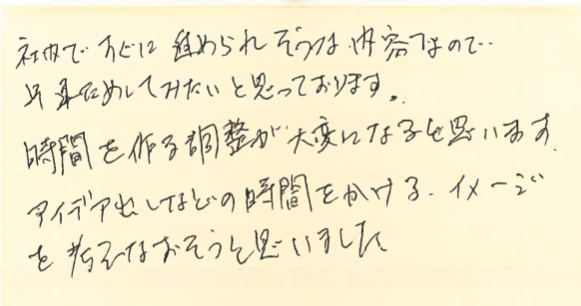 社内ですぐに進められそうな内容なので
早速ためしてみたいと思っております。
時間を作る調整が大変になると思います
アイデア出しなどの時間をかける、イメージ
を考えなおそうと思いました